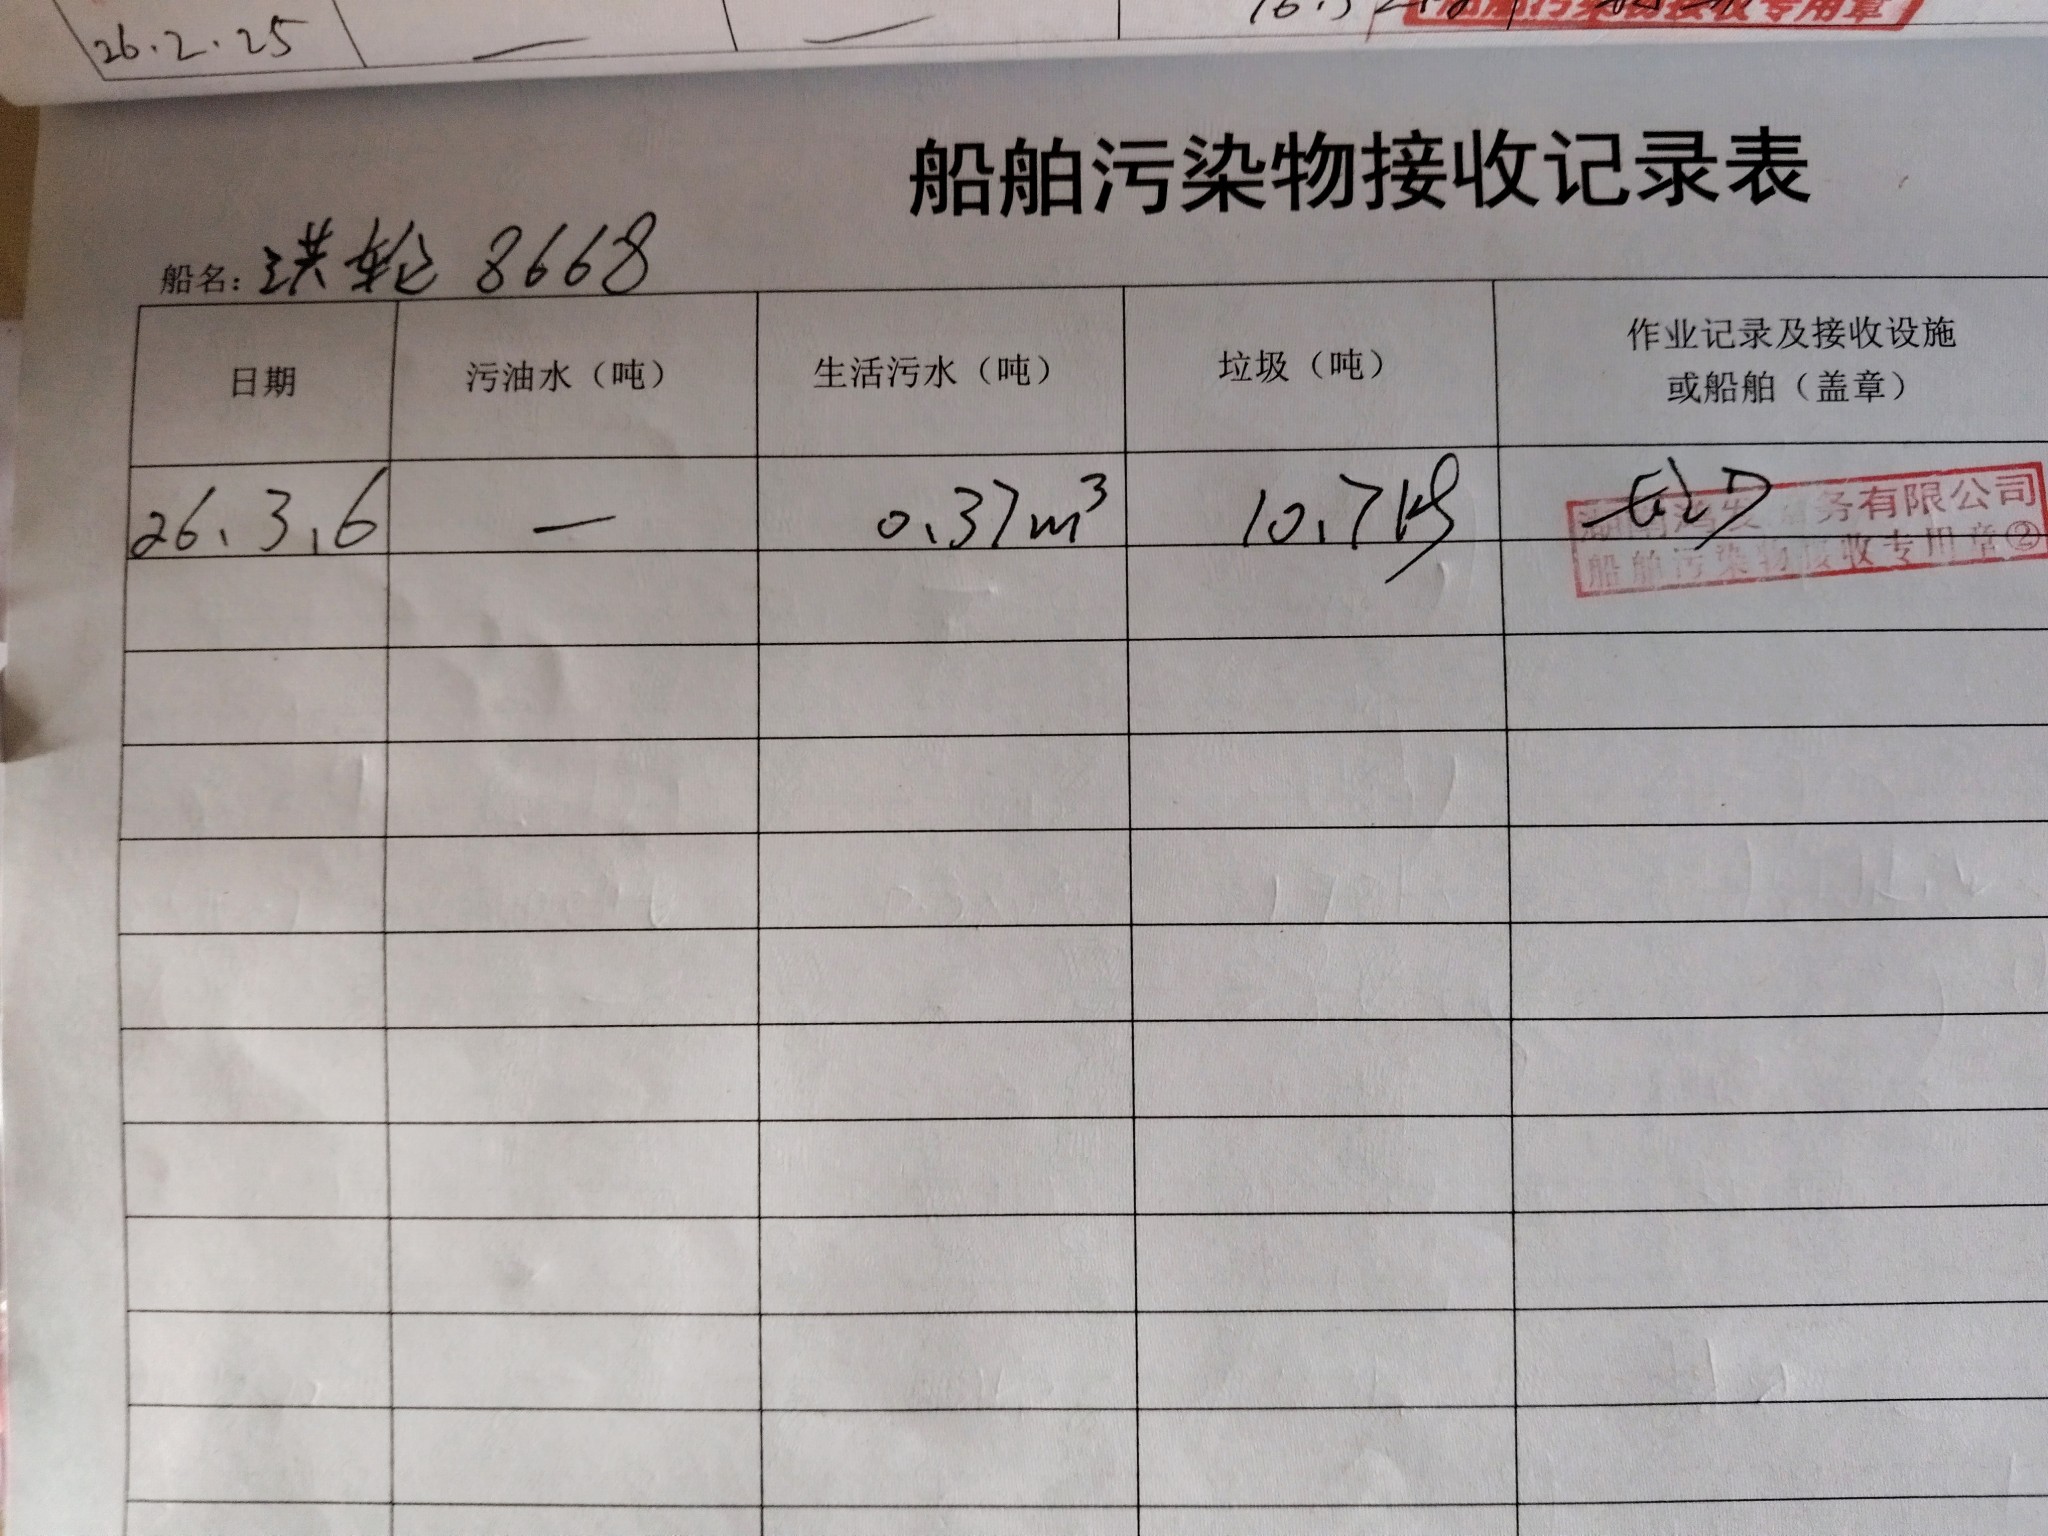 26.2.25 — —
船舶污染物接收专用章
船舶污染物接收记录表
船名: 洪轮 8668
日期 污油水（吨） 生活污水（吨） 垃圾（吨） 作业记录及接收设施
或船舶（盖章）
26.3.6 — 0.37m³ 10.7kg
务有限公司
船舶污染物接收专用章②